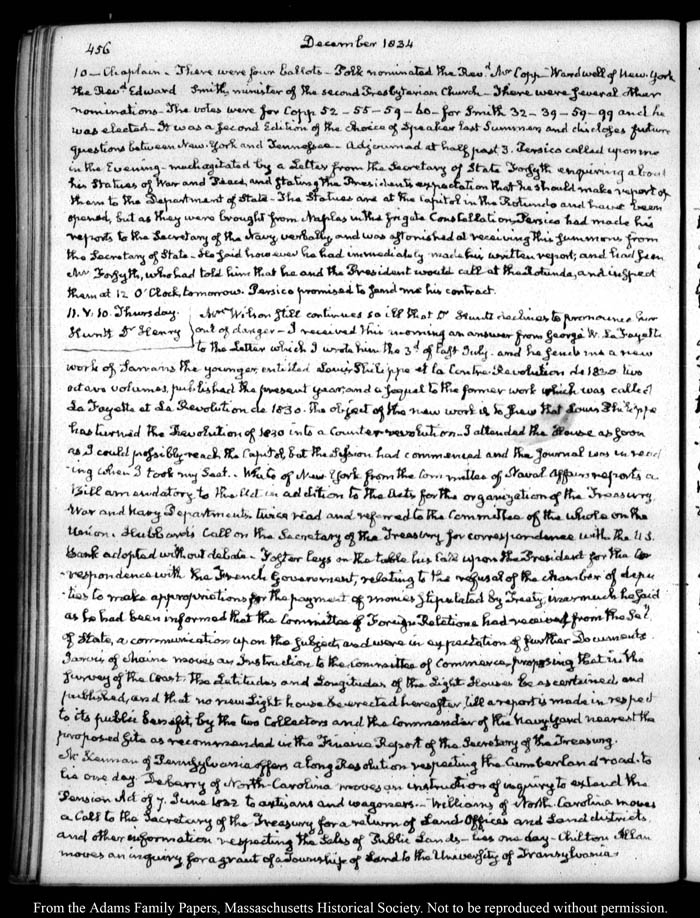 456
December 1834
10 — Chaplain. There were four ballots — Polk nominated the Rev.d Mr Copp — Wardwell of New-York
the Rev.d Edward Smith, minister of the second Presbyterian Church — There were several other
nominations — The votes were for Copp 52 - 55 - 59 - 60 — for Smith 32 - 39 - 59 - 99 and he
was elected — It was a second Edition of the choice of Speaker last Summer, and discloses future
questions between New-York and Tennessee — Adjourned at half past 3. Persico called upon me
in the Evening — much agitated by a Letter from the Secretary of State Forsyth enquiring about
his Statues of War and Peace, and stating the President's expectation that he should make report of
them to the Department of State — The Statues are at the Capitol in the Rotundo and have been
opened, but as they were brought from Naples in the frigate Constellation, Persico had made his
reports to the Secretary of the Navy verbally, and was astonished at receiving this summons from
the Secretary of State — He said however he had immediately made his written report, and had seen
Mr Forsyth, who had told him that he and the President would call at the Rotunda, and inspect
them at 12 O'Clock, tomorrow. Persico promised to send me his contract.
11. V. 30. Thursday.
Huntt Dr Henry
Mrs Wilson still continues so ill that Dr Huntt declines to pronounce her
out of danger — I received this morning an answer from George W. La Fayette
to the Letter which I wrote him the 3.d of last July. and he sends me a new
work of Sarrans the younger, entitled Louis Philippe et la Contre-Revolution de 1830 two
octavo volumes, published the present year, and a sequel to the former work which was called
La Fayette et La Revolution de 1830. The object of the new work is to shew that Louis Philippe
has turned the Revolution of 1830 into a Counter-revolution — I attended the House as soon
as I could possibly reach the Capitol, but the Session had commenced and the Journal was in read
-ing when I took my Seat. White of New York from the Committee of Naval Affairs reports a
Bill amendatory to the Act in addition to the Acts for the organization of the Treasury,
War and Navy Departments twice read and referred to the Committee of the whole on the
Union. Hubbard's Call on the Secretary of the Treasury for correspondence with the U.S.
Bank adopted without debate — Foster lays on the table his Call upon the President for the Cor
-respondence with the French Government, relating to the refusal of the chamber of depu
-ties to make appropriations for the payment of monies stipulated by Treaty, inasmuch he said
as he had been informed that the Committee of Foreign Relations had received from the Sec.y
of State, a communication upon the subject, and were in expectation of further Documents.
Jarvis of Maine moves an Instruction to the Committee of Commerce, proposing that in the
Survey of the Coast the Latitudes and Longitudes of the Light Houses be ascertained, and
published, and that no new Light house be erected hereafter, till a report is made in respect
to its public benefit, by the two Collectors and the Commander of the Navy Yard nearest the
proposed site as recommended in the Finance Report of the Secretary of the Treasury.
McKennan of Pennsylvania offers a long Resolution respecting the Cumberland road — to
lie one day. Deberry of North-Carolina moves an instruction of inquiry to extend the
Pension Act of 7. June 1832 to artisans and wagoners — Williams of North-Carolina moves
a Call to the Secretary of the Treasury for a return of Land Offices and Land districts
and other information respecting the Sales of Public Lands — lies one day — Chilton Allan
moves an inquiry for a grant of a Township of Land to the University of Transylvania
From the Adams Family Papers, Massachusetts Historical Society. Not to be reproduced without permission.